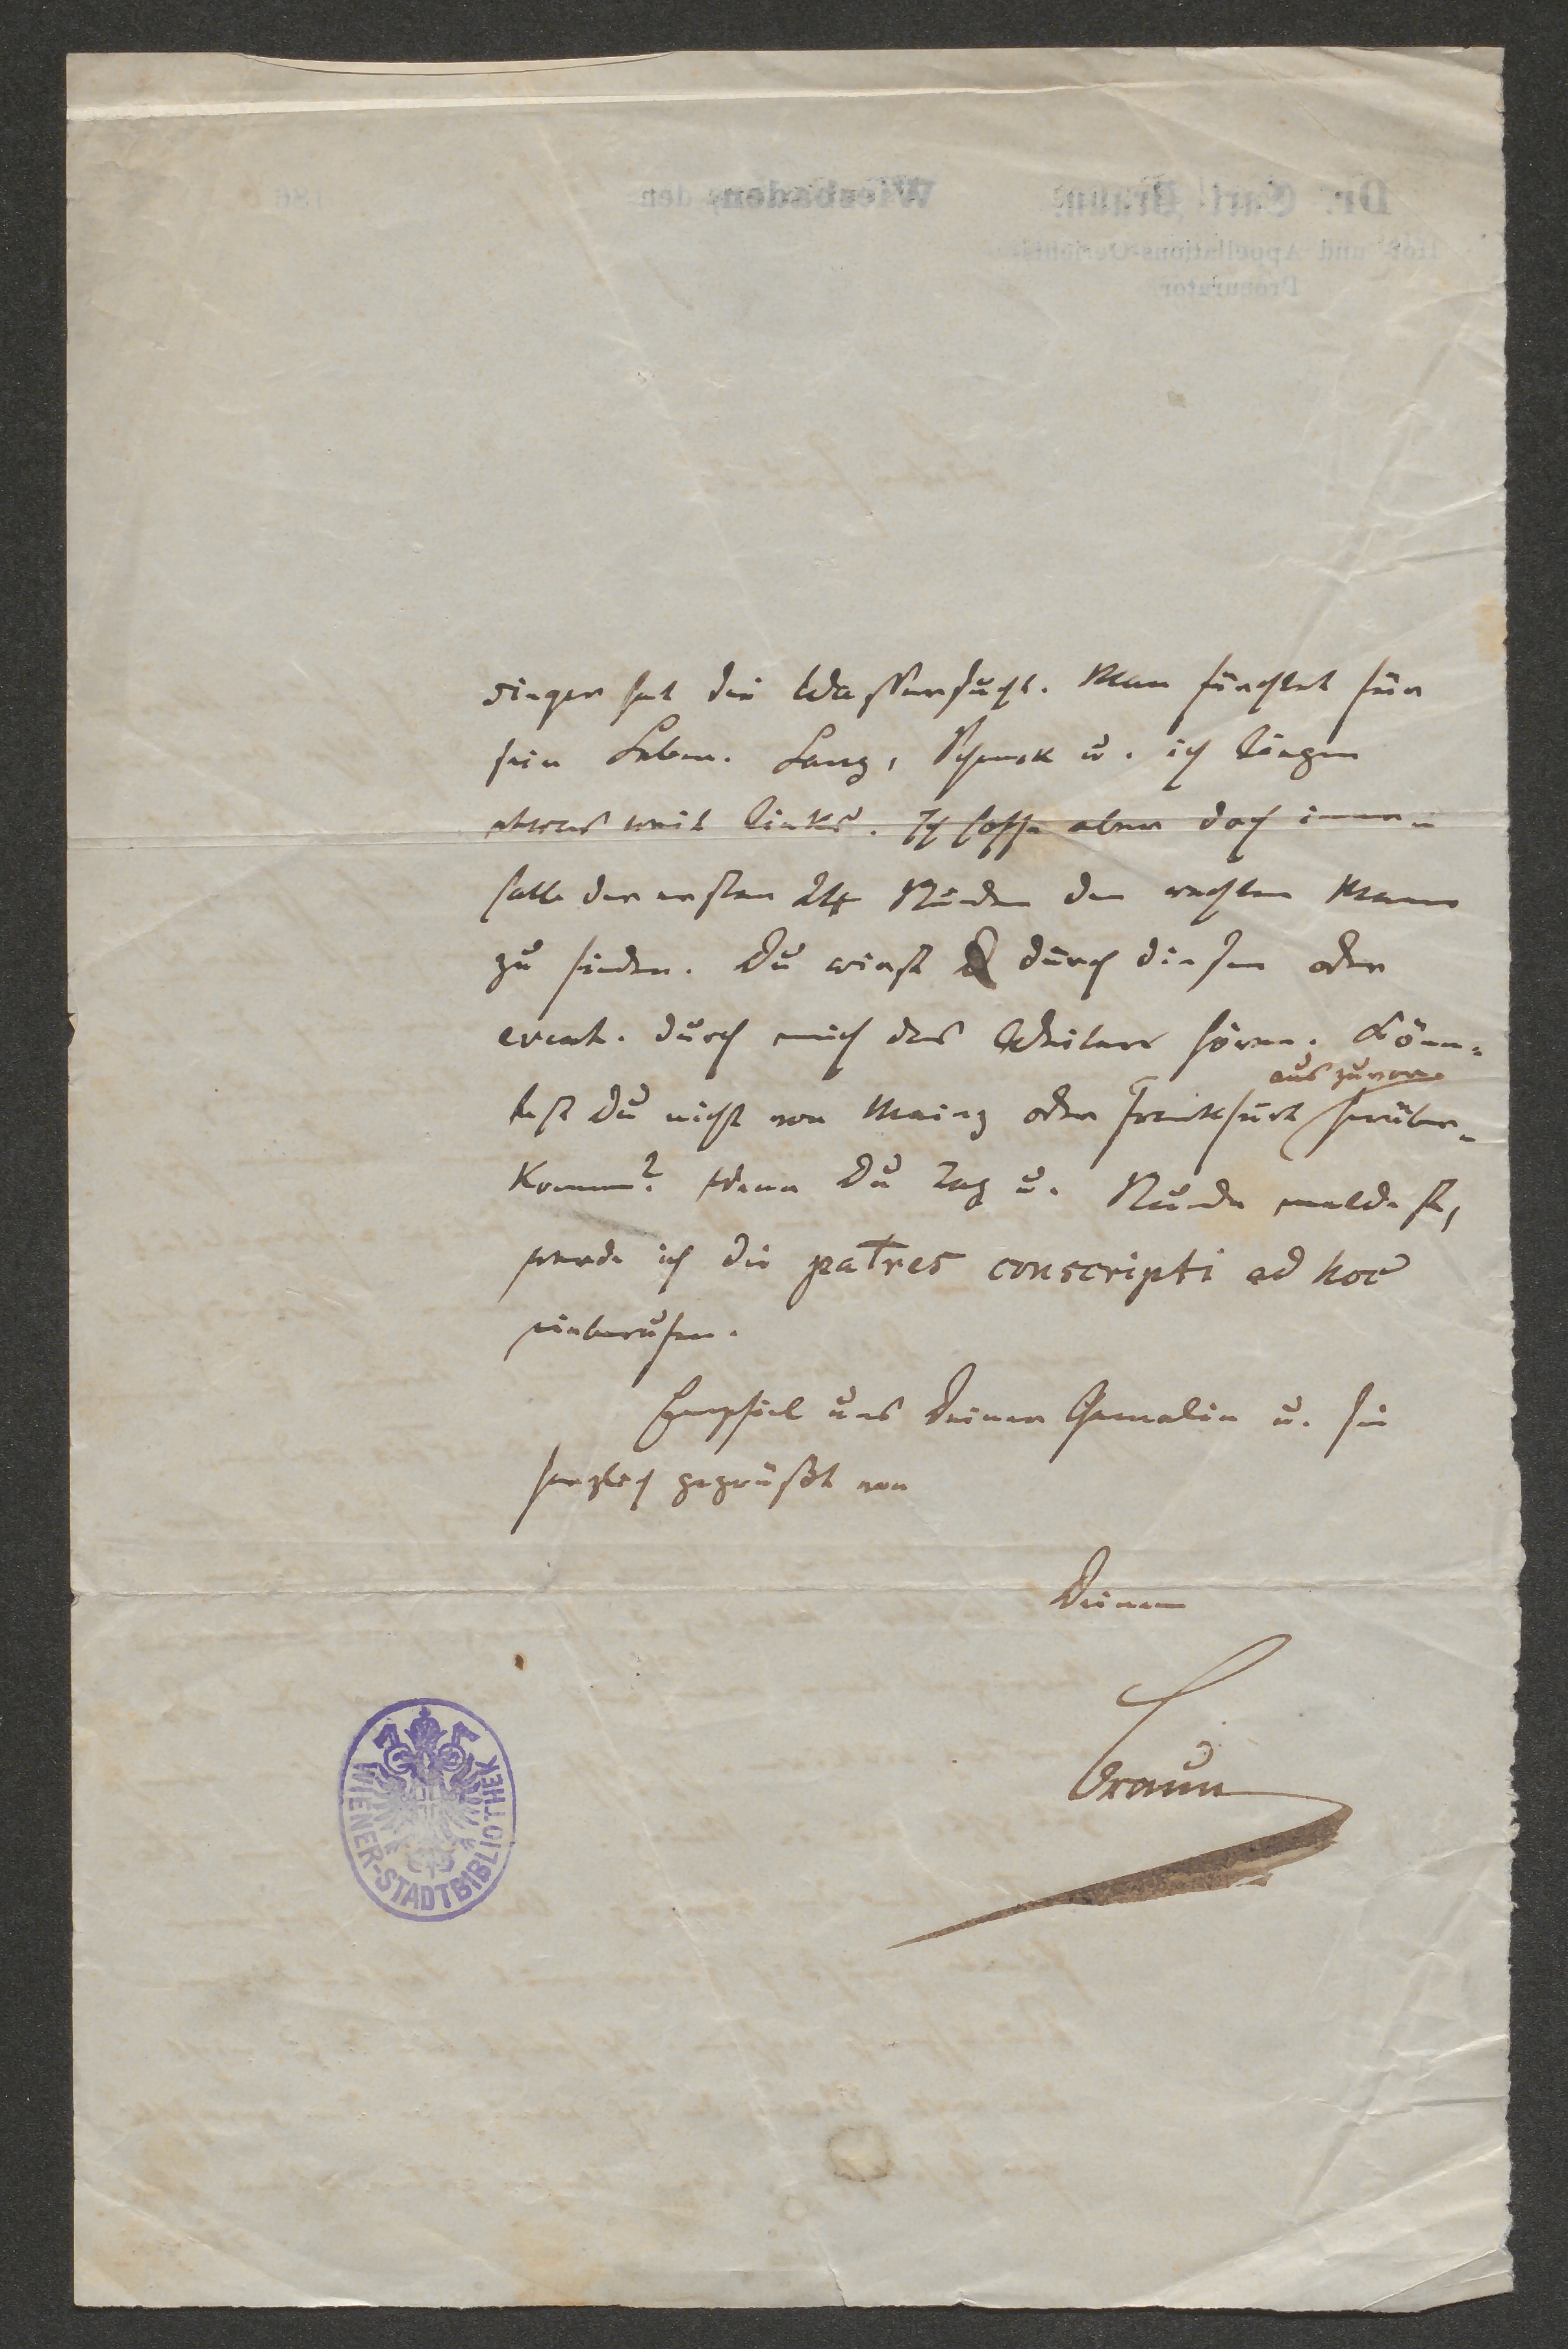 singer hat die Wassersucht. Man fürchtet für
sein Leben. Lang, Schenk u. ich liegen
etwas weit links. Ich hoffe aber doch inner-
halb der ersten 24 Stunden den rechten Mann
zu finden. Du wirst durch diesen oder
event. durch mich das Weitere hören. Könn-
test Du nicht von Mainz oder Frankfurt aus zuvor herüber-
kommen? Wenn Du Tag u. Stunde meldest,
werde ich die patres conscripti ad hoc
einberufen.
Empfiel uns Deiner Gemalin u. sei
herzlich gegrüßt von
Deinem
Braun
WIENER-STADTBIBLIOTHEK
Dr. Carl Braun
Hof- und Appellations-Gerichts-
Procurator
Wiesbaden, den
186